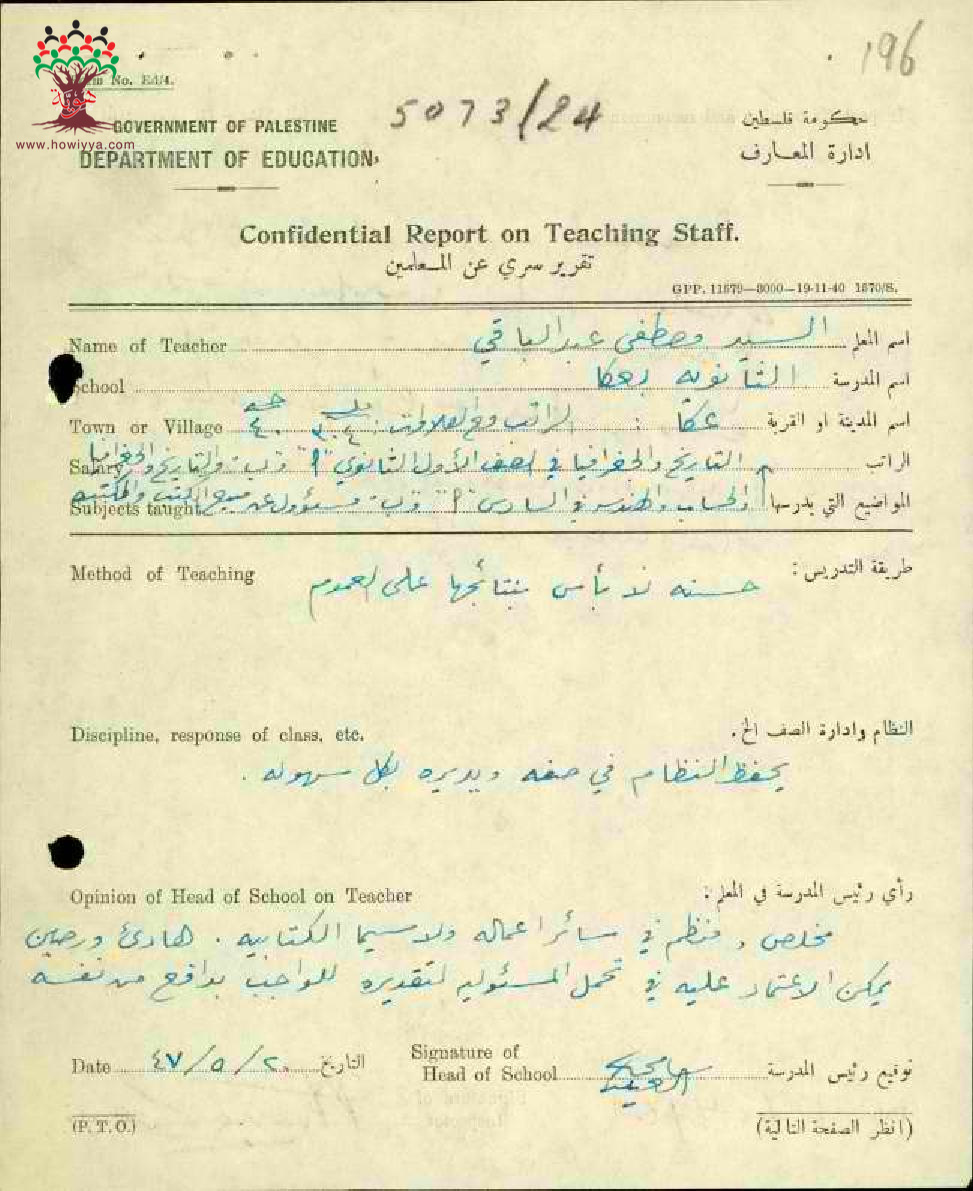 196
m No. Ed/4.
5073/24
GOVERNMENT OF PALESTINE
حكومة فلسطين
www.howiyya.com
DEPARTMENT OF EDUCATION
ادارة المعارف
Confidential Report on Teaching Staff.
تقرير سري عن المعلمين
GPP. 11679—3000—19-11-40 1670/S.
Name of Teacher السيد مصطفى عبد الباقي اسم المعلم
School الثانوية بعكا اسم المدرسة
Town or Village عكا : الراتب مع العلاوات اسم المدينة او القرية
Salary التاريخ والجغرافيا في الصف الأول الثانوي والتاريخ والجغرافيا الراتب
Subjects taught والحساب والهندسة في السادس مسؤول عن الكتب والمكتبة المواضيع التي يدرسها
Method of Teaching طريقة التدريس :
حسنه لا بأس بنتائجها على العموم
Discipline, response of class, etc. النظام وادارة الصف الخ.
يحفظ النظام في صفه ويديره بكل سهوله .
Opinion of Head of School on Teacher رأي رئيس المدرسة في المعلم :
مخلص , منظم في سائر اعماله ولا سيما الكتابيه . هادئ ورصين
يمكن الاعتماد عليه في تحمل المسئوليه لتقديره للواجب بدافع من نفسه
Date ٢٠/٥/٤٧ التاريخ Signature of Head of School توقيع رئيس المدرسة
(P. T. O.) (انظر الصفحة التالية)